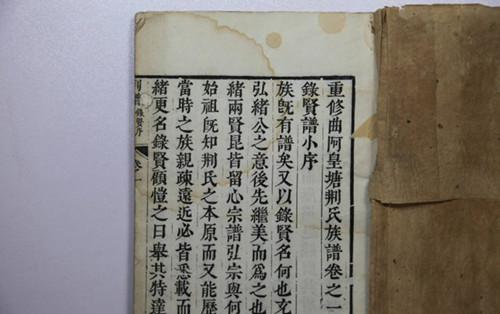 重修曲阿皇塘荆氏族譜卷之一
錄賢譜小序
族旣有譜矣又以錄賢名何也
弘緒公之意後先繼美而爲之也
緒兩賢昆皆畱心宗譜弘宗與何
始祖旣知荆氏之本原而又能歷
當時之族親疎遠近必皆悉載而
緒更名錄賢顧愷之曰舉其特達
荆譜 錄賢序 卷一